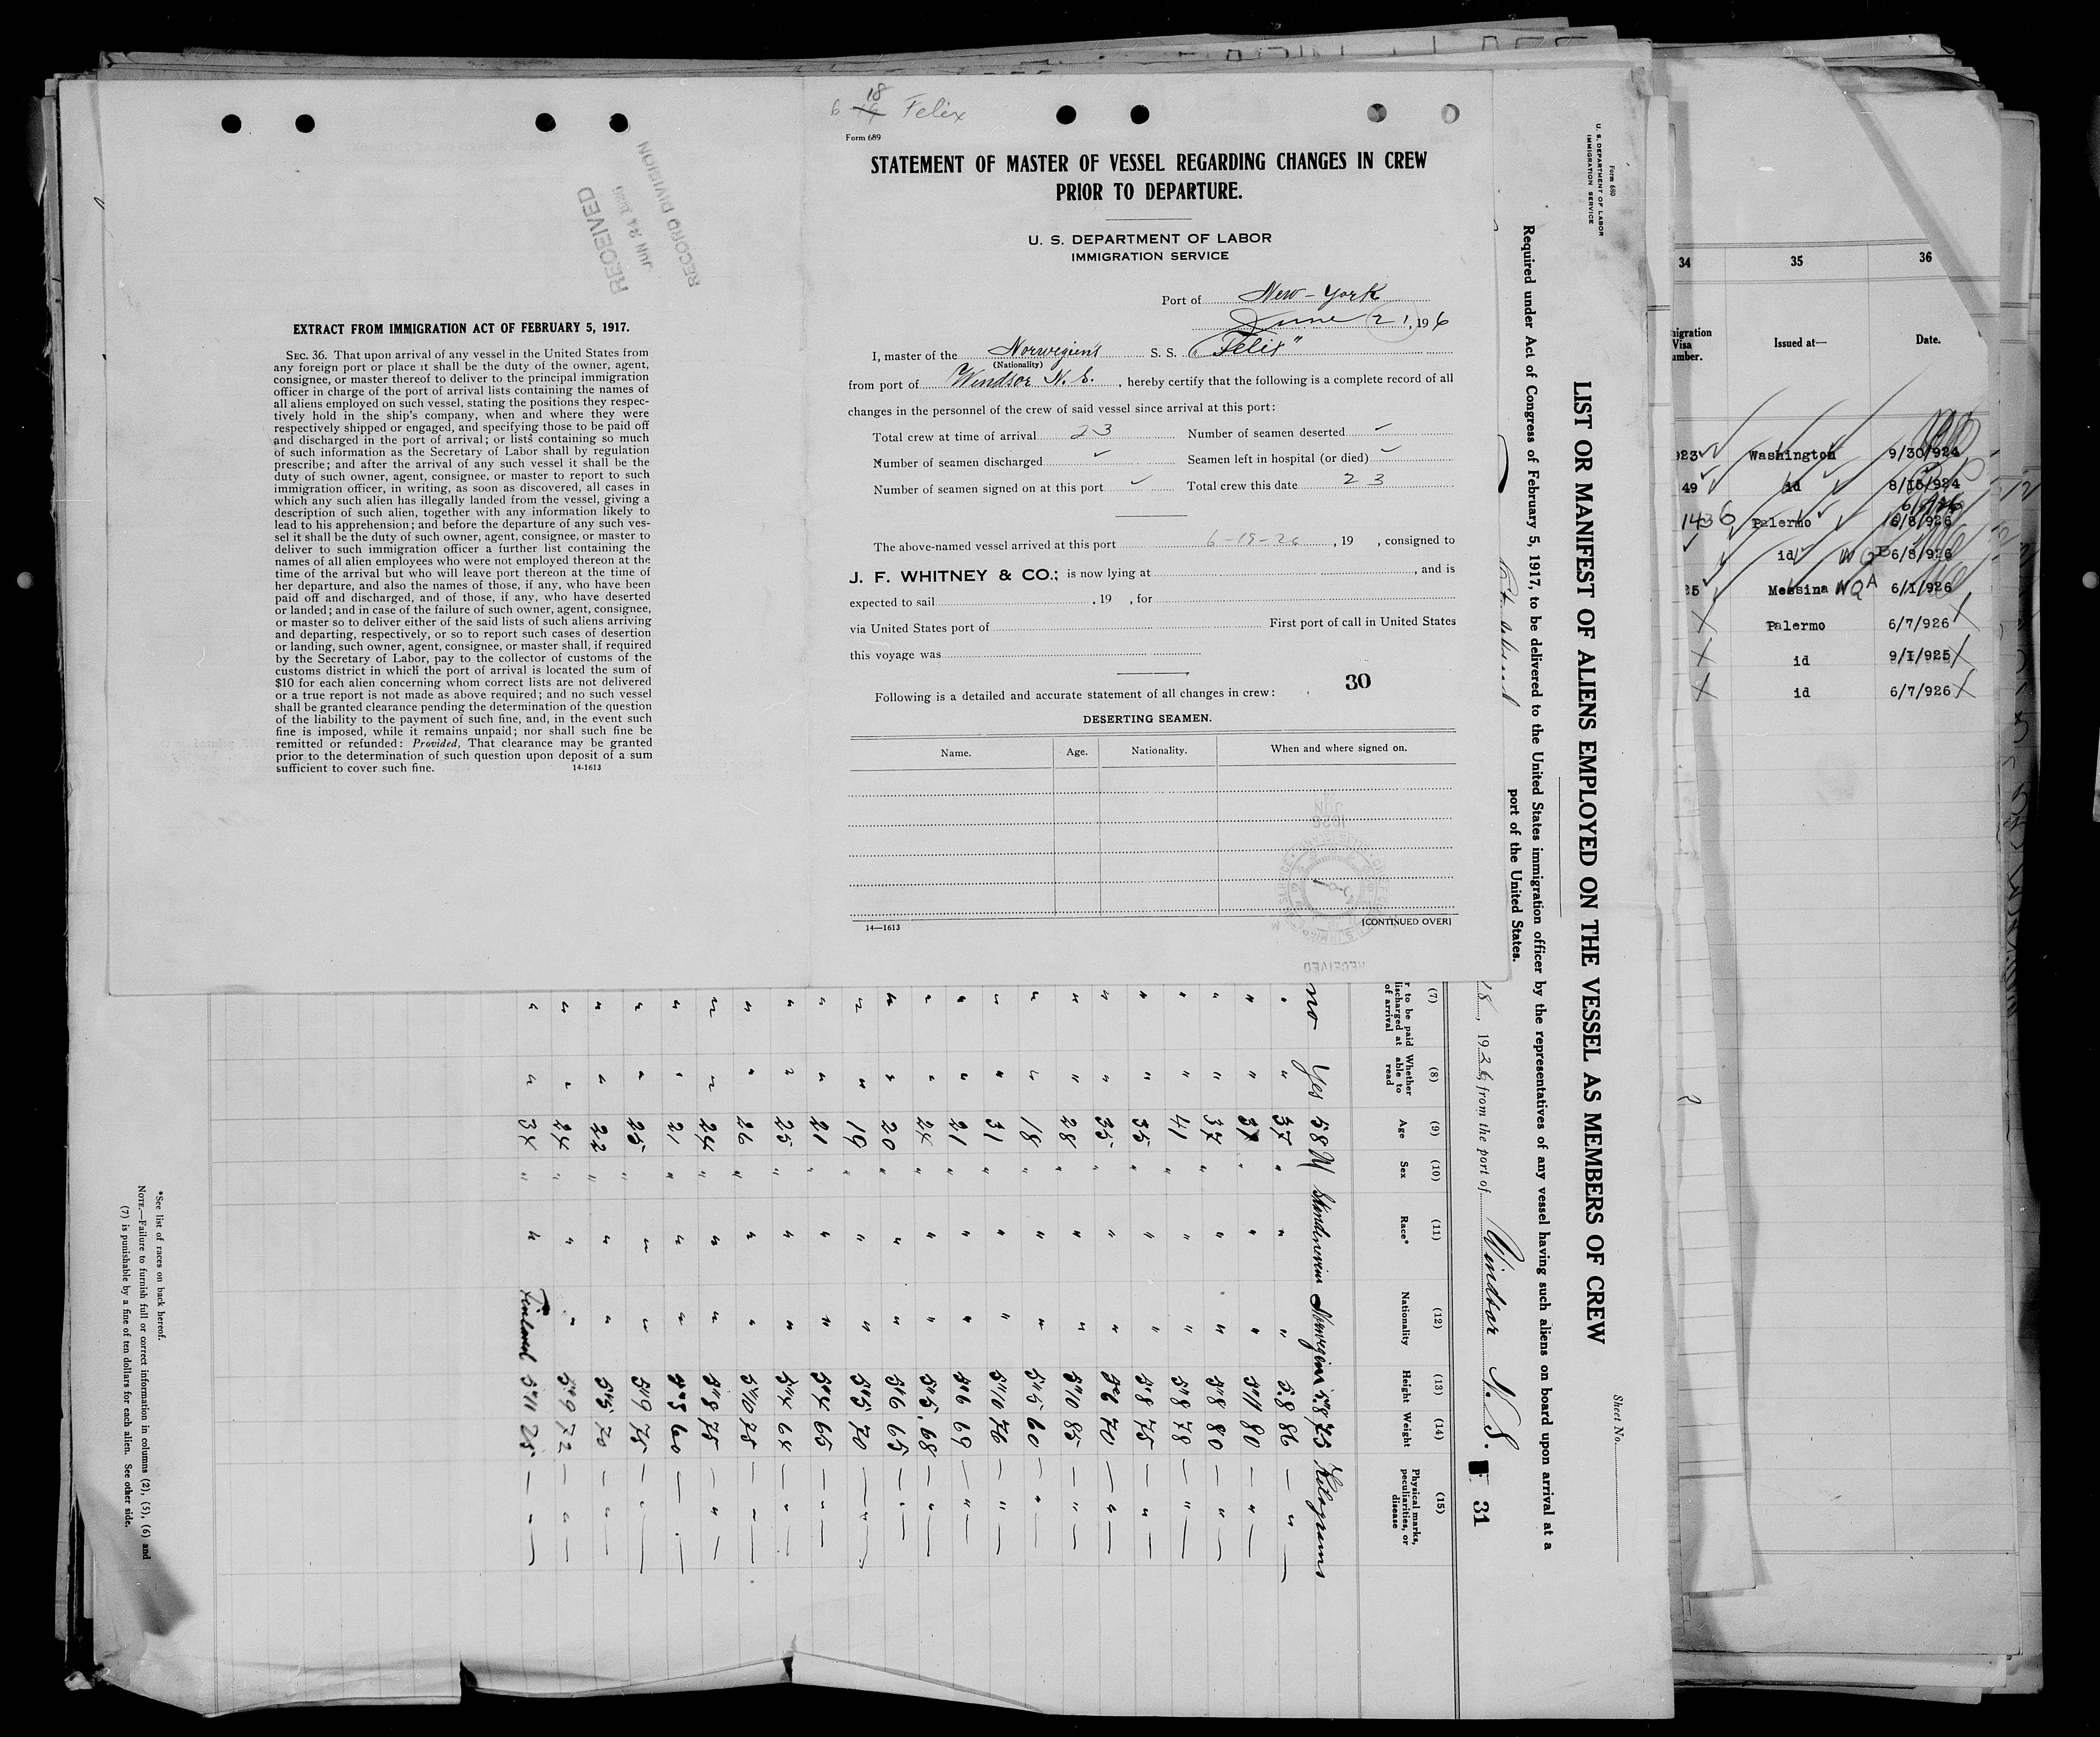 RECEIVED
JUN 24 1926
RECORD DIVISION
EXTRACT FROM IMMIGRATION ACT OF FEBRUARY 5, 1917.
SEC. 36. That upon arrival of any vessel in the United States from
any foreign port or place it shall be the duty of the owner, agent,
consignee, or master thereof to deliver to the principal immigration
officer in charge of the port of arrival lists containing the names of
all aliens employed on such vessel, stating the positions they respec-
tively hold in the ship's company, when and where they were
respectively shipped or engaged, and specifying those to be paid off
and discharged in the port of arrival; or lists containing so much
of such information as the Secretary of Labor shall by regulation
prescribe; and after the arrival of any such vessel it shall be the
duty of such owner, agent, consignee, or master to report to such
immigration officer, in writing, as soon as discovered, all cases in
which any such alien has illegally landed from the vessel, giving a
description of such alien, together with any information likely to
lead to his apprehension; and before the departure of any such ves-
sel it shall be the duty of such owner, agent, consignee, or master to
deliver to such immigration officer a further list containing the
names of all alien employees who were not employed thereon at the
time of the arrival but who will leave port thereon at the time of
her departure, and also the names of those, if any, who have been
paid off and discharged, and of those, if any, who have deserted
or landed; and in case of the failure of such owner, agent, consignee,
or master so to deliver either of the said lists of such aliens arriving
and departing, respectively, or so to report such cases of desertion
or landing, such owner, agent, consignee, or master shall, if required
by the Secretary of Labor, pay to the collector of customs of the
customs district in which the port of arrival is located the sum of
$10 for each alien concerning whom correct lists are not delivered
or a true report is not made as above required; and no such vessel
shall be granted clearance pending the determination of the question
of the liability to the payment of such fine, and, in the event such
fine is imposed, while it remains unpaid; nor shall such fine be
remitted or refunded: Provided, That clearance may be granted
prior to the determination of such question upon deposit of a sum
sufficient to cover such fine. 14-1613
6 18 Felix
Form 689
STATEMENT OF MASTER OF VESSEL REGARDING CHANGES IN CREW
PRIOR TO DEPARTURE.
U. S. DEPARTMENT OF LABOR
IMMIGRATION SERVICE
Port of New-York
June 21, 1926
I, master of the Norwegien's S. S. "Felix"
(Nationality)
from port of Windsor N. S., hereby certify that the following is a complete record of all
changes in the personnel of the crew of said vessel since arrival at this port:
Total crew at time of arrival 23 Number of seamen deserted
Number of seamen discharged Seamen left in hospital (or died)
Number of seamen signed on at this port Total crew this date 23
The above-named vessel arrived at this port 6-19-26, 19 , consigned to
J. F. WHITNEY & CO.; is now lying at , and is
expected to sail , 19 , for
via United States port of First port of call in United States
this voyage was
Following is a detailed and accurate statement of all changes in crew: 30
DESERTING SEAMEN.
Name. Age. Nationality. When and where signed on.
14—1613 [CONTINUED OVER]
RECEIVED
Form 680
U. S. DEPARTMENT OF LABOR
IMMIGRATION SERVICE
Sheet No.
LIST OR MANIFEST OF ALIENS EMPLOYED ON THE VESSEL AS MEMBERS OF CREW
Required under Act of Congress of February 5, 1917, to be delivered to the United States immigration officer by the representatives of any vessel having such aliens on board upon arrival at a
port of the United States.
18, 1926, from the port of Windsor N. S. 31
(7) (8) (9) (10) (11) (12) (13) (14) (15)
r to be paid discharged at of arrival Whether able to read Age Sex Race* Nationality Height Weight Physical marks, peculiarities, or disease
no Yes 58 M Skandinavien Norwegien 5.8 75 Kilograms
" " 37 " " " 5.8 86 "
" " 37 " " " 5"11 80 "
" " 37 " " " 5"8 80 "
" " 41 " " " 5"8 78 "
" " 35 " " " 5"8 75 "
" " 35 " " " 5"6 70 "
" " 28 " " " 5"10 85 "
" " 18 " " " 5"5 60 "
" " 31 " " " 5"10 76 "
" " 21 " " " 5"6 69 "
" " 24 " " " 5"5 68 "
" " 20 " " " 5"6 65 "
" " 19 " " " 5"5 70 "
" " 21 " " " 5"4 65 "
" " 25 " " " 5"4 64 "
" " 26 " " " 5"10 78 "
" " 24 " " " 5"8 75 "
" " 21 " " " 5"3 60 "
" " 25 " " " 5"9 75 "
" " 22 " " " 5"5 70 "
" " 24 " " " 5"9 72 "
" " 34 " " Finland 5"11 75 "
*See list of races on back hereof.
NOTE.—Failure to furnish full or correct information in columns (2), (5), (6) and
(7) is punishable by a fine of ten dollars for each alien. See other side.
34 35 36
migration Visa umber. Issued at— Date.
923 Washington 9/30/924
49 id 8/15/924
1436 Palermo 6/8/926
id 6/8/926
25 Messina 6/1/926
Palermo 6/7/926
id 9/1/925
id 6/7/926